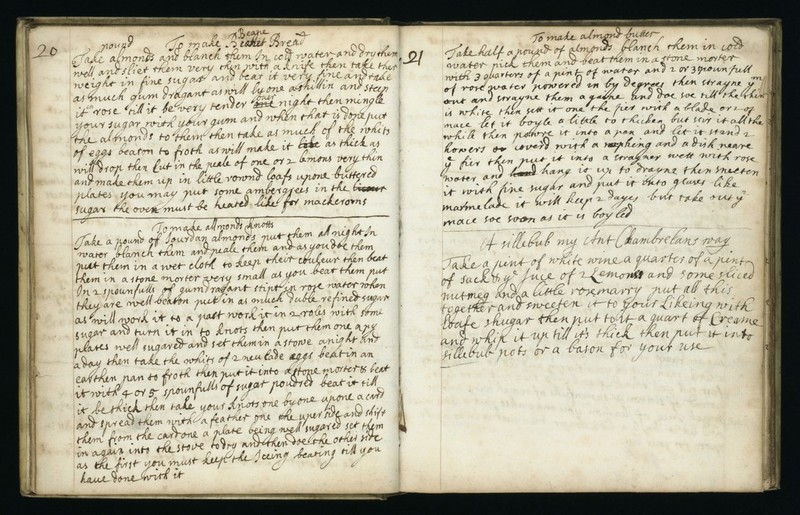 20
To make Beane Bread
pound
Take almonds and blanch them In cold water and dry them
well and sliet them very thin with a knife then take ther
weight in fine sugar and bear it very fine and take
as much gum dragant as will ly one a shillin and steep
it in rose till it be very tender one night then mingle
your sugar with your gum and when that is done put
the almonds to them then take as much of the whits
of eggs beaton to froth as will make it as thick as
will drop then put in the peale of one or 2 lemons very thin
and make them up in little rownd loafs upone buttered
plates you may put some ambergrees in the
sugar the oven must be heated like for mackerorns
To make allmonds knotts
Take a pound of Jourdan almonds put them all night In
water blanch them and peale them and as you doe them
putt them in a wet cloth to keep their couleur then beat
them in a stone morter very small as you beat them put
In 2 spounfulls of gum dragant stipt in rose water when
they are well beaton put in as much duble refined sugar
as will work it to a past work it in 2 roles with some
sugar and turn it in to knots then put them one a py
plates well sugared and set them in a stowe a night and
a day then take the whits of 2 new lade eggs beat in an
earthen pan to froth then put it into a stone morter & beat
it with 4 or 5 spounfulls of sugar poudred beat it till
it be thick then take your knots one by one upone a card
and spread them with a feather one the uper side and shift
them from the card one a plate being well sugared set them
in again into the stove to dry and then doe the other side
as the first you must keep the Iceing beating till you
have done with it
21
To make almond butter
Take half a pound of almonds blanch them in cold
water pick them and beat them in a stone morter
with 3 quarters of a pint of water and 2 or 3 spounfull
of rose water powered in by degrees then strayne ym
out and strayne them a gaine and doe soe till the
is white then sett it one the fier with a blade or 2 of
mace let it boyle a little to thicken but stir it all the
while then powre it into a pan and let it stand 2
howers coverd with a napking and a dish neare
ye fier then put it into a strayner wett with rose
water and hang it up to drayne then sweeten
it with fine sugar and put it into glasses like
marmelade it will keep 2 dayes but take out ye
mace soe soon as it is boyled
A sillebub my Ant Chambrelans way
Take a pint of white wine a quarter of a pint
of sack & ye Juce of 2 Lemons and some sliced
nutmeg and a little rosemarry put all this
together and sweeten it to your Likeing with
loafe shugar then put to it a quart of Creame
and whip it up till its thick then put it into
sillebub pots or a bason for your use